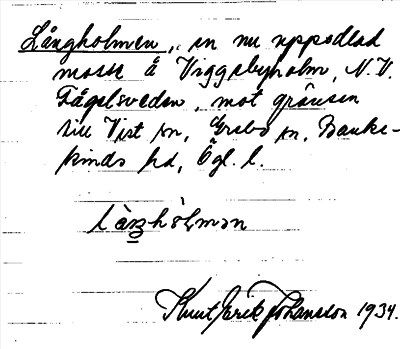 Långholmen, en nu uppodlad
mosse å Viggebyholm, N.V.
Fågelsveden, mot gränsen
till Vist sn, Grebo sn, Banke-
kinds hd, Ögl. l.
làŋhòlmən
Knut Erik Johansson 1934.